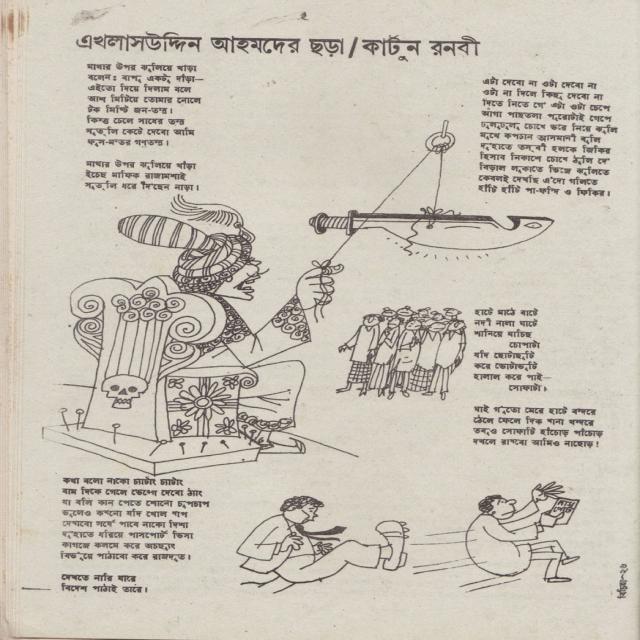 এখলাসউদ্দিন আহমদের ছড়া/কার্টুন রনবী
মাথার উপর ঝুলিয়ে খাঁড়া
বলেন: বাপু একটু দাঁড়া—
এইতো দিয়ে দিলাম বলে
আশ মিটিয়ে তোমার নোলে
টক মিষ্টি জন-তন্ত্র।
কিন্তু চেলে সাধের তন্ত্র
সুতুলি কেটে দেবো আমি
ফুস-মন্তর গণতন্ত্র।
মাথার উপর ঝুলিয়ে খাঁড়া
ইচ্ছে মাফিক রাজামশাই
সুতুলি ধরে দিচ্ছেন নাড়া।
এটা দেবো না ওটা দেবো না
ওটা না দিলে কিছু দেবো না
দিতে নিতে গে' এটা ওটা চেপে
আগা পাছতলা পুরোটাই মেপে
ঢুলুঢুলু চোখে ভরে নিয়ে ঝুলি
মুখে কপচান আসমানী বুলি
দু'হাতে তসবী হলকে জিকির
হিসাব নিকাশে চোখে ঠুলি দে'
বিড়াল লুকাতে ভিজে ঝুলিতে
কেবলই দেখছি এ'দো গলিতে
হাঁটি হাঁটি পা-ফন্দি ও ফিকির।
হাটে মাঠে বাটে
নদী নালা ঘাটে
শানিয়ে যাচ্ছি
চোপাটা
যদি ছোটাছুটি
করে ভোটাভুটি
হালাল করে পাই—
সোফাটা।
যাই গুঁতো মেরে হাটে বন্দরে
ঠেলে ফেলে দিক খানা খন্দরে
তবুও সোফাটি হাঁচোড় পাঁচোড়
দখলে রাখবো আমিও নাছোড়!
কথা বলো নাকো চ্যাটাং চ্যাটাং
বাম দিকে গেলে ভেঙ্গে দেবো ঠ্যাং
যা বলি কান পেতে শোনো চুপচাপ
ভুলেও কখনো যদি খোল খাপ
দেখাবো সর্ষে পাবে নাকো দিশা
দু'হাতে ধরিয়ে পাসপোর্ট ভিসা
কাগজে কলমে করে অচ্ছ্যুৎ
বিভুঁয়ে পাঠাবো করে রাজদূত।
দেখতে নারি যারে
বিদেশ পাঠাই তারে।
বিচিত্রা-২৬